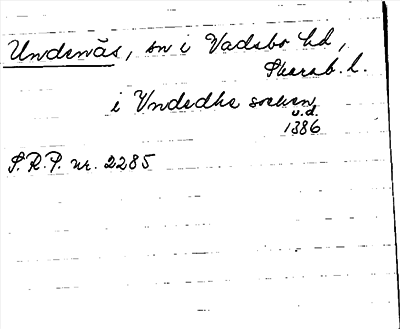 Undenäs, sn i Vadsbo hd,
Skarab. l.
i Vndedhe socken
u.d.
1386
S.R.P. nr. 2285